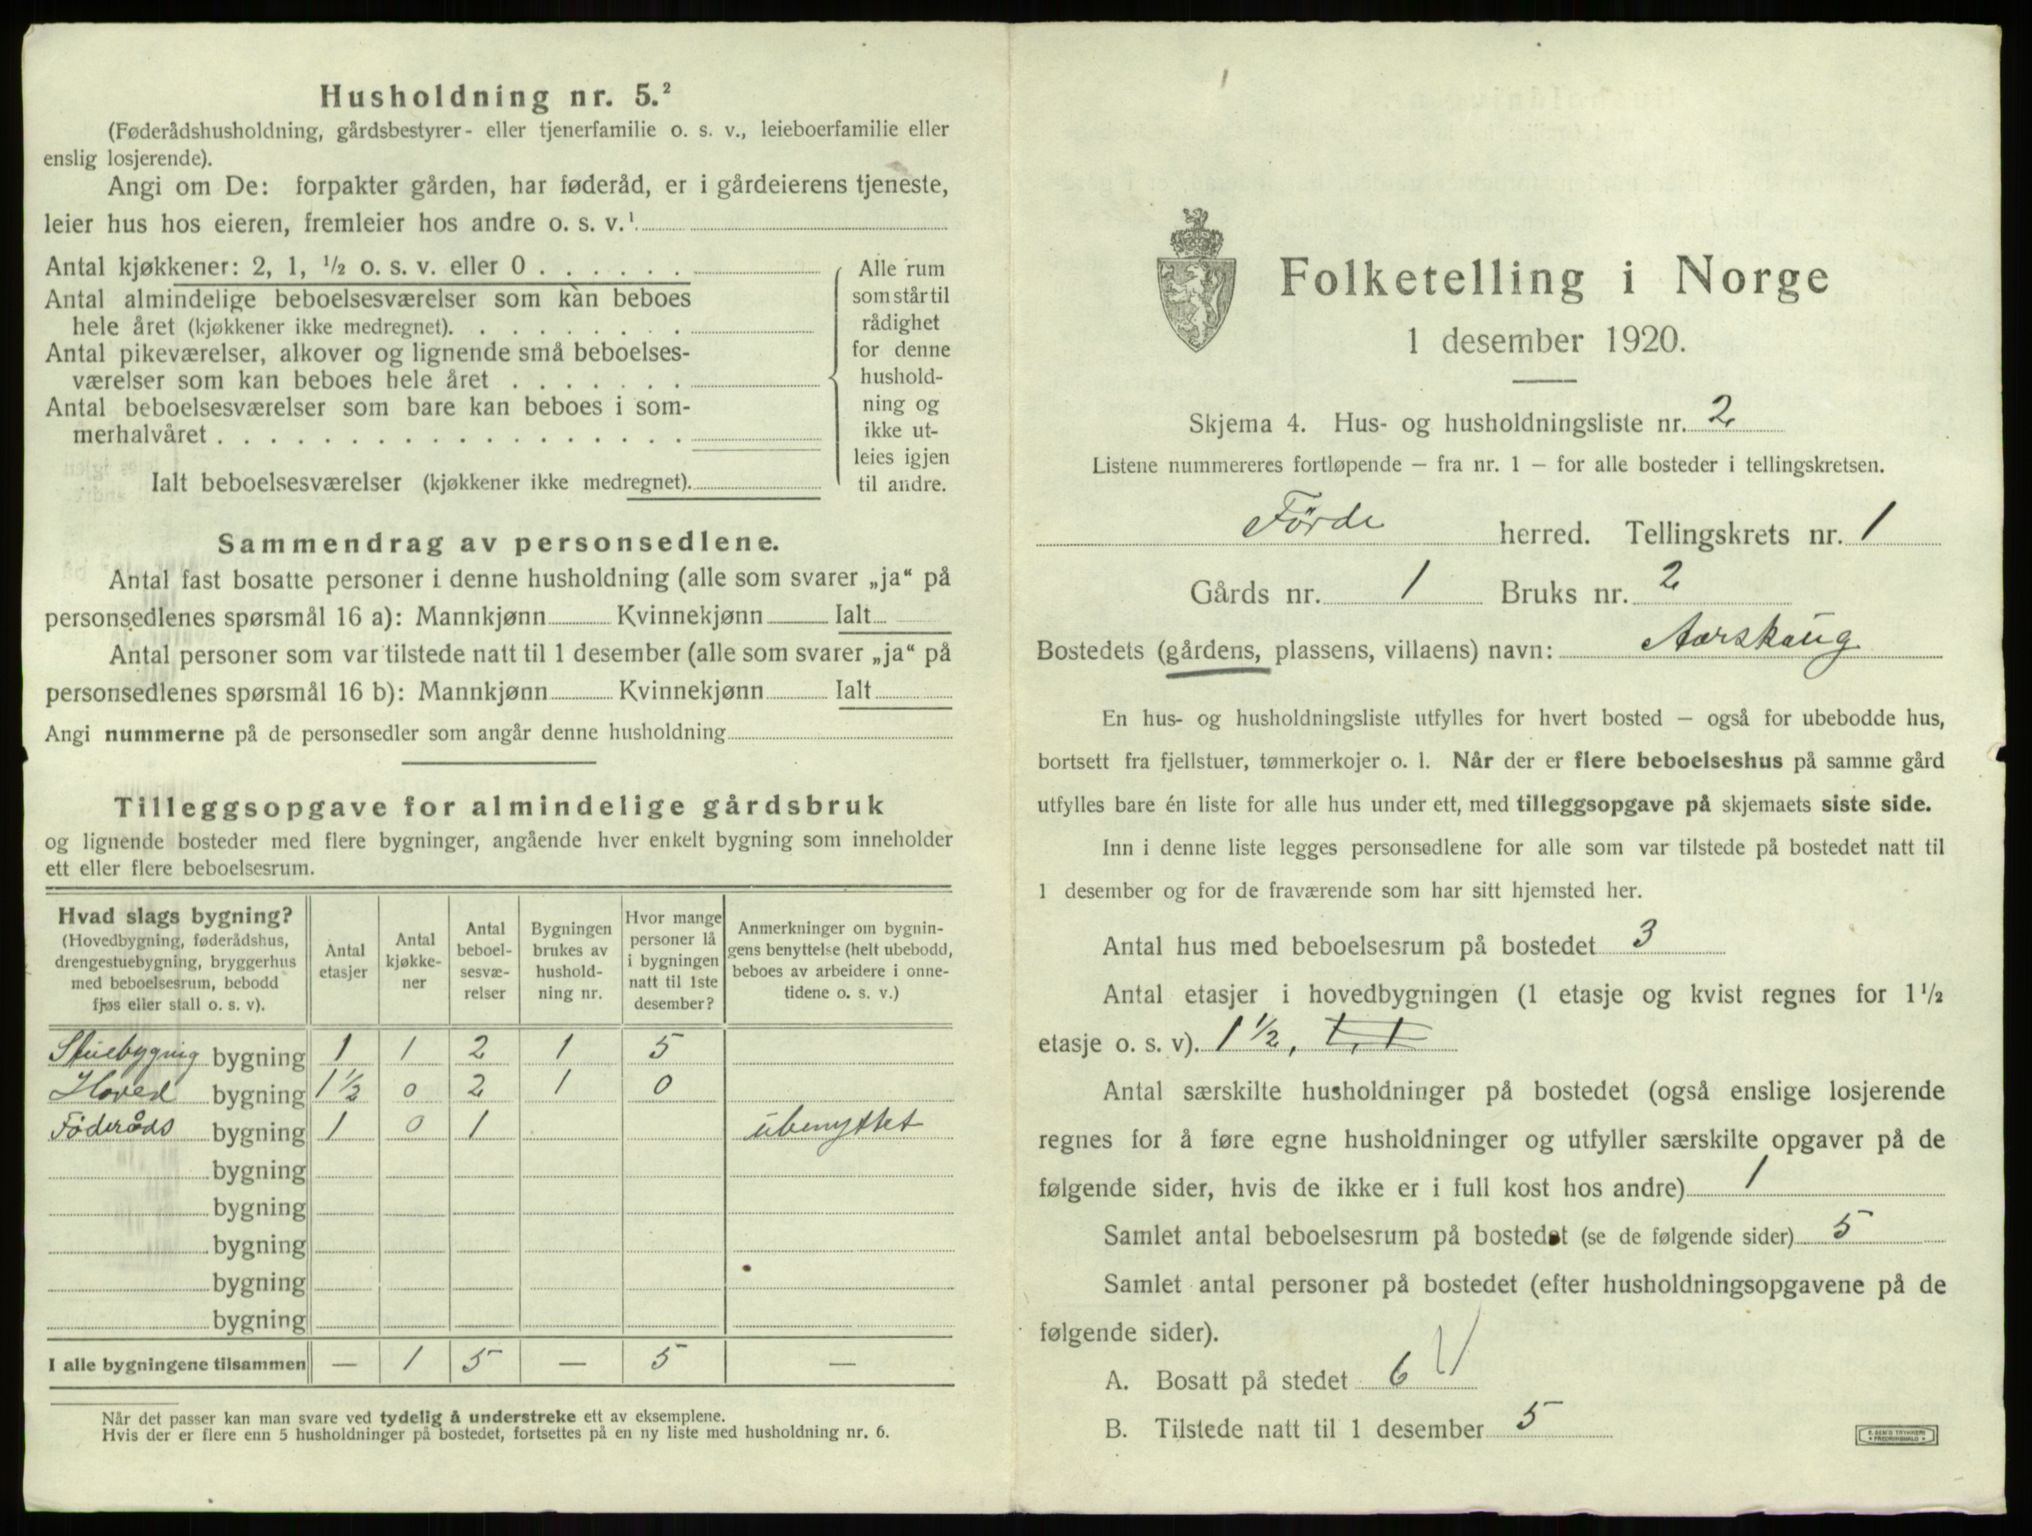 Husholdning nr. 5.²
(Føderådshusholdning, gårdsbestyrer- eller tjenerfamilie o. s. v., leieboerfamilie eller
enslig losjerende).
Angi om De: forpakter gården, har føderåd, er i gårdeierens tjeneste,
leier hus hos eieren, fremleier hos andre o. s. v.¹
Antal kjøkkener: 2, 1, ½ o. s. v. eller 0
Antal almindelige beboelsesværelser som kan beboes
hele året (kjøkkener ikke medregnet).
Antal pikeværelser, alkover og lignende små beboelses-
værelser som kan beboes hele året
Antal beboelsesværelser som bare kan beboes i som-
merhalvåret
Ialt beboelsesværelser (kjøkkener ikke medregnet).
Alle rum
som står til
rådighet
for denne
hushold-
ning og
ikke ut-
leies igjen
til andre.
Sammendrag av personsedlene.
Antal fast bosatte personer i denne husholdning (alle som svarer „ja“ på
personsedlenes spørsmål 16 a): Mannkjønn Kvinnekjønn Ialt
Antal personer som var tilstede natt til 1 desember (alle som svarer „ja“ på
personsedlenes spørsmål 16 b): Mannkjønn Kvinnekjønn Ialt
Angi nummerne på de personsedler som angår denne husholdning
Tilleggsopgave for almindelige gårdsbruk
og lignende bosteder med flere bygninger, angående hver enkelt bygning som inneholder
ett eller flere beboelsesrum.
Hvad slags bygning?
(Hovedbygning, føderådshus,
drengestuebygning, bryggerhus
med beboelsesrum, bebodd
fjøs eller stall o. s. v).
Antal
etasjer
Antal
kjøkke-
ner
Antal
beboel-
sesvæ-
relser
Bygningen
brukes av
hushold-
ning nr.
Hvor mange
personer lå
i bygningen
natt til 1ste
desember?
Anmerkninger om bygnin-
gens benyttelse (helt ubebodd,
beboes av arbeidere i onne-
tidene o. s. v.)
Stuebygnig bygning 1 1 2 1 5
Hoved bygning 1½ 0 2 1 0
Föderåds bygning 1 0 1 ubenyttet
bygning
bygning
bygning
bygning
bygning
I alle bygningene tilsammen — 1 5 — 5 —
Når det passer kan man svare ved tydelig å understreke ett av eksemplene.
Hvis der er flere enn 5 husholdninger på bostedet, fortsettes på en ny liste med husholdning nr. 6.
Folketelling i Norge
1 desember 1920.
Skjema 4. Hus- og husholdningsliste nr. 2
Listene nummereres fortløpende — fra nr. 1 — for alle bosteder i tellingskretsen.
Förde herred. Tellingskrets nr. 1
Gårds nr. 1 Bruks nr. 2
Bostedets (gårdens, plassens, villaens) navn: Aarskaug
En hus- og husholdningsliste utfylles for hvert bosted — også for ubebodde hus,
bortsett fra fjellstuer, tømmerkojer o. l. Når der er flere beboelseshus på samme gård
utfylles bare én liste for alle hus under ett, med tilleggsopgave på skjemaets siste side.
Inn i denne liste legges personsedlene for alle som var tilstede på bostedet natt til
1 desember og for de fraværende som har sitt hjemsted her.
Antal hus med beboelsesrum på bostedet 3
Antal etasjer i hovedbygningen (1 etasje og kvist regnes for 1½
etasje o. s. v). 1½, 1, 1
Antal særskilte husholdninger på bostedet (også enslige losjerende
regnes for å føre egne husholdninger og utfyller særskilte opgaver på de
følgende sider, hvis de ikke er i full kost hos andre) 1
Samlet antal beboelsesrum på bostedet (se de følgende sider) 5
Samlet antal personer på bostedet (efter husholdningsopgavene på de
følgende sider).
A. Bosatt på stedet 6
B. Tilstede natt til 1 desember 5